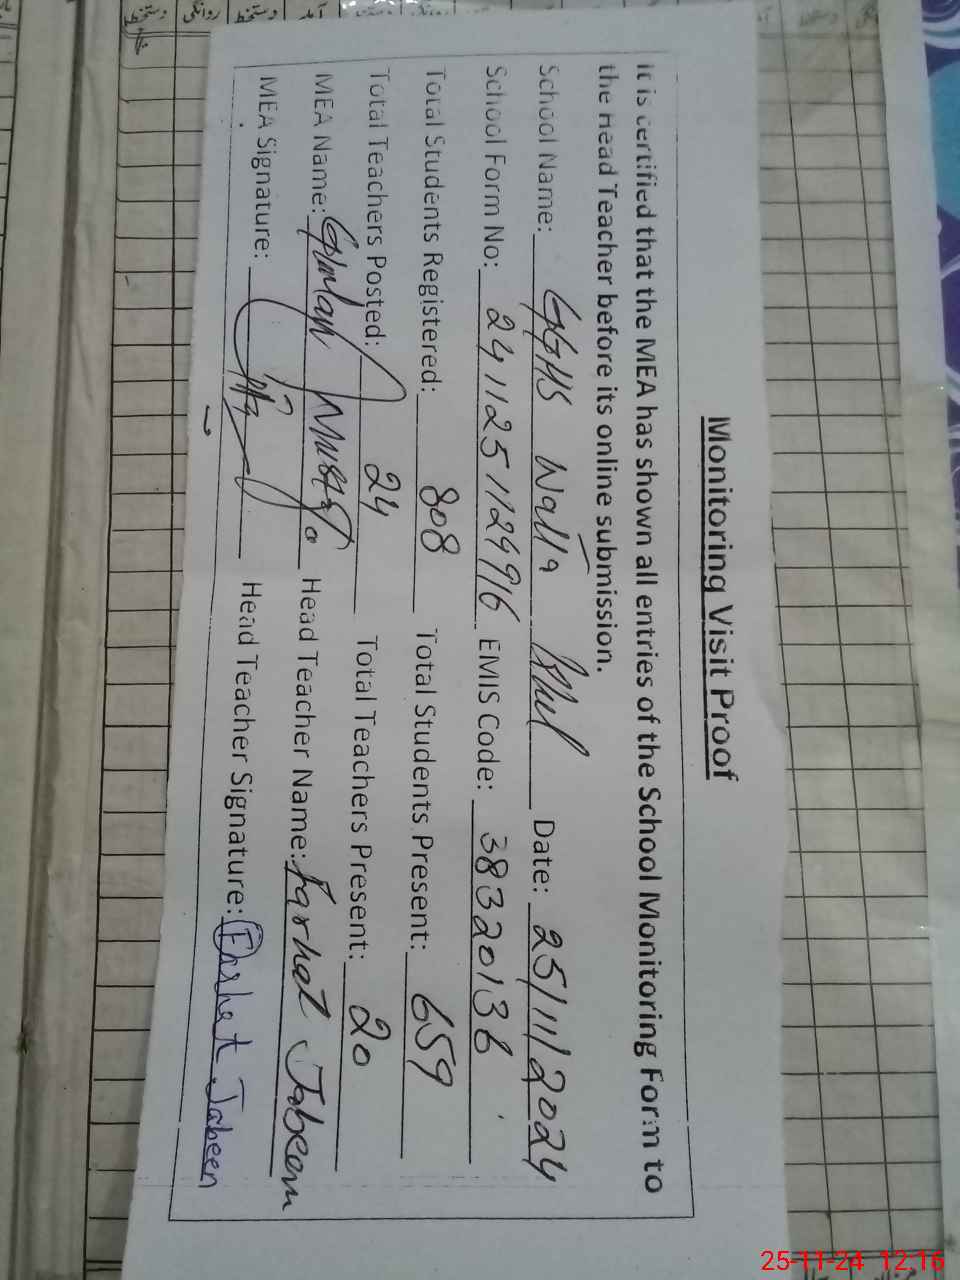 Monitoring Visit Proof
It is certified that the MEA has shown all entries of the School Monitoring Form to
the Head Teacher before its online submission.
School Name: GGHS Walla Date: 25/11/2024
School Form No: 241125112996 EMIS Code: 38320138
Total Students Registered: 808 Total Students Present: 659
Total Teachers Posted: 24 Total Teachers Present: 20
MEA Name: Ghulam Mustafa Head Teacher Name: Farhat Jabeen
MEA Signature: Head Teacher Signature: Farhat Jabeen
25-11-24 12:16